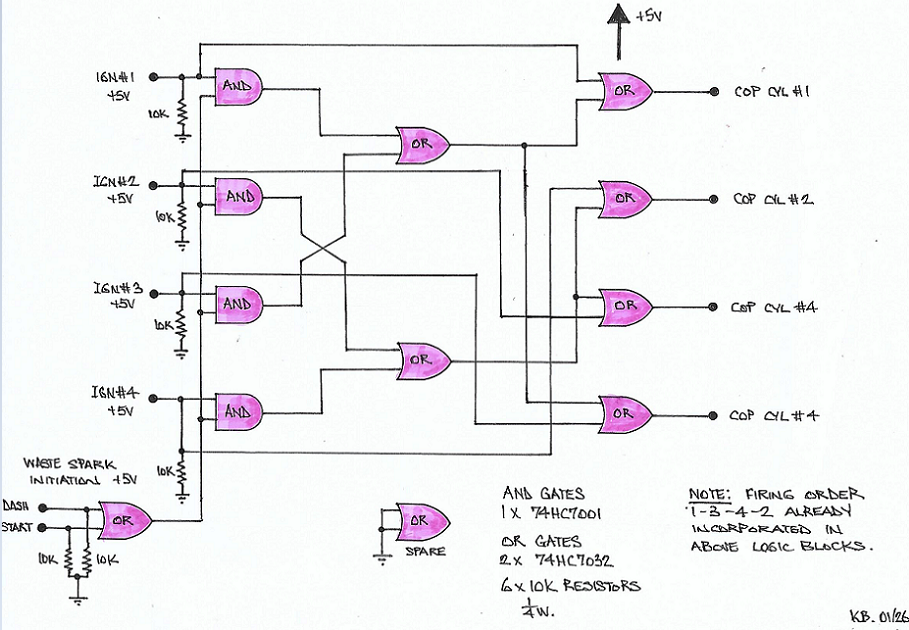 +5V
IGN#1
+5V
10K
AND
OR
OR
COP CYL #1
IGN#2
+5V
10K
AND
OR
COP CYL #2
IGN#3
+5V
10K
AND
OR
COP CYL #4
IGN#4
+5V
10K
AND
OR
OR
COP CYL #4
WASTE SPARK
INITIATION +5V
DASH
START
OR
10K
10K
OR
SPARE
AND GATES
1 X 74HC7001
OR GATES
2 X 74HC7032
6 X 10K RESISTORS
1/4 W.
NOTE: FIRING ORDER
1-3-4-2 ALREADY
INCORPORATED IN
ABOVE LOGIC BLOCKS.
KB. 01/26